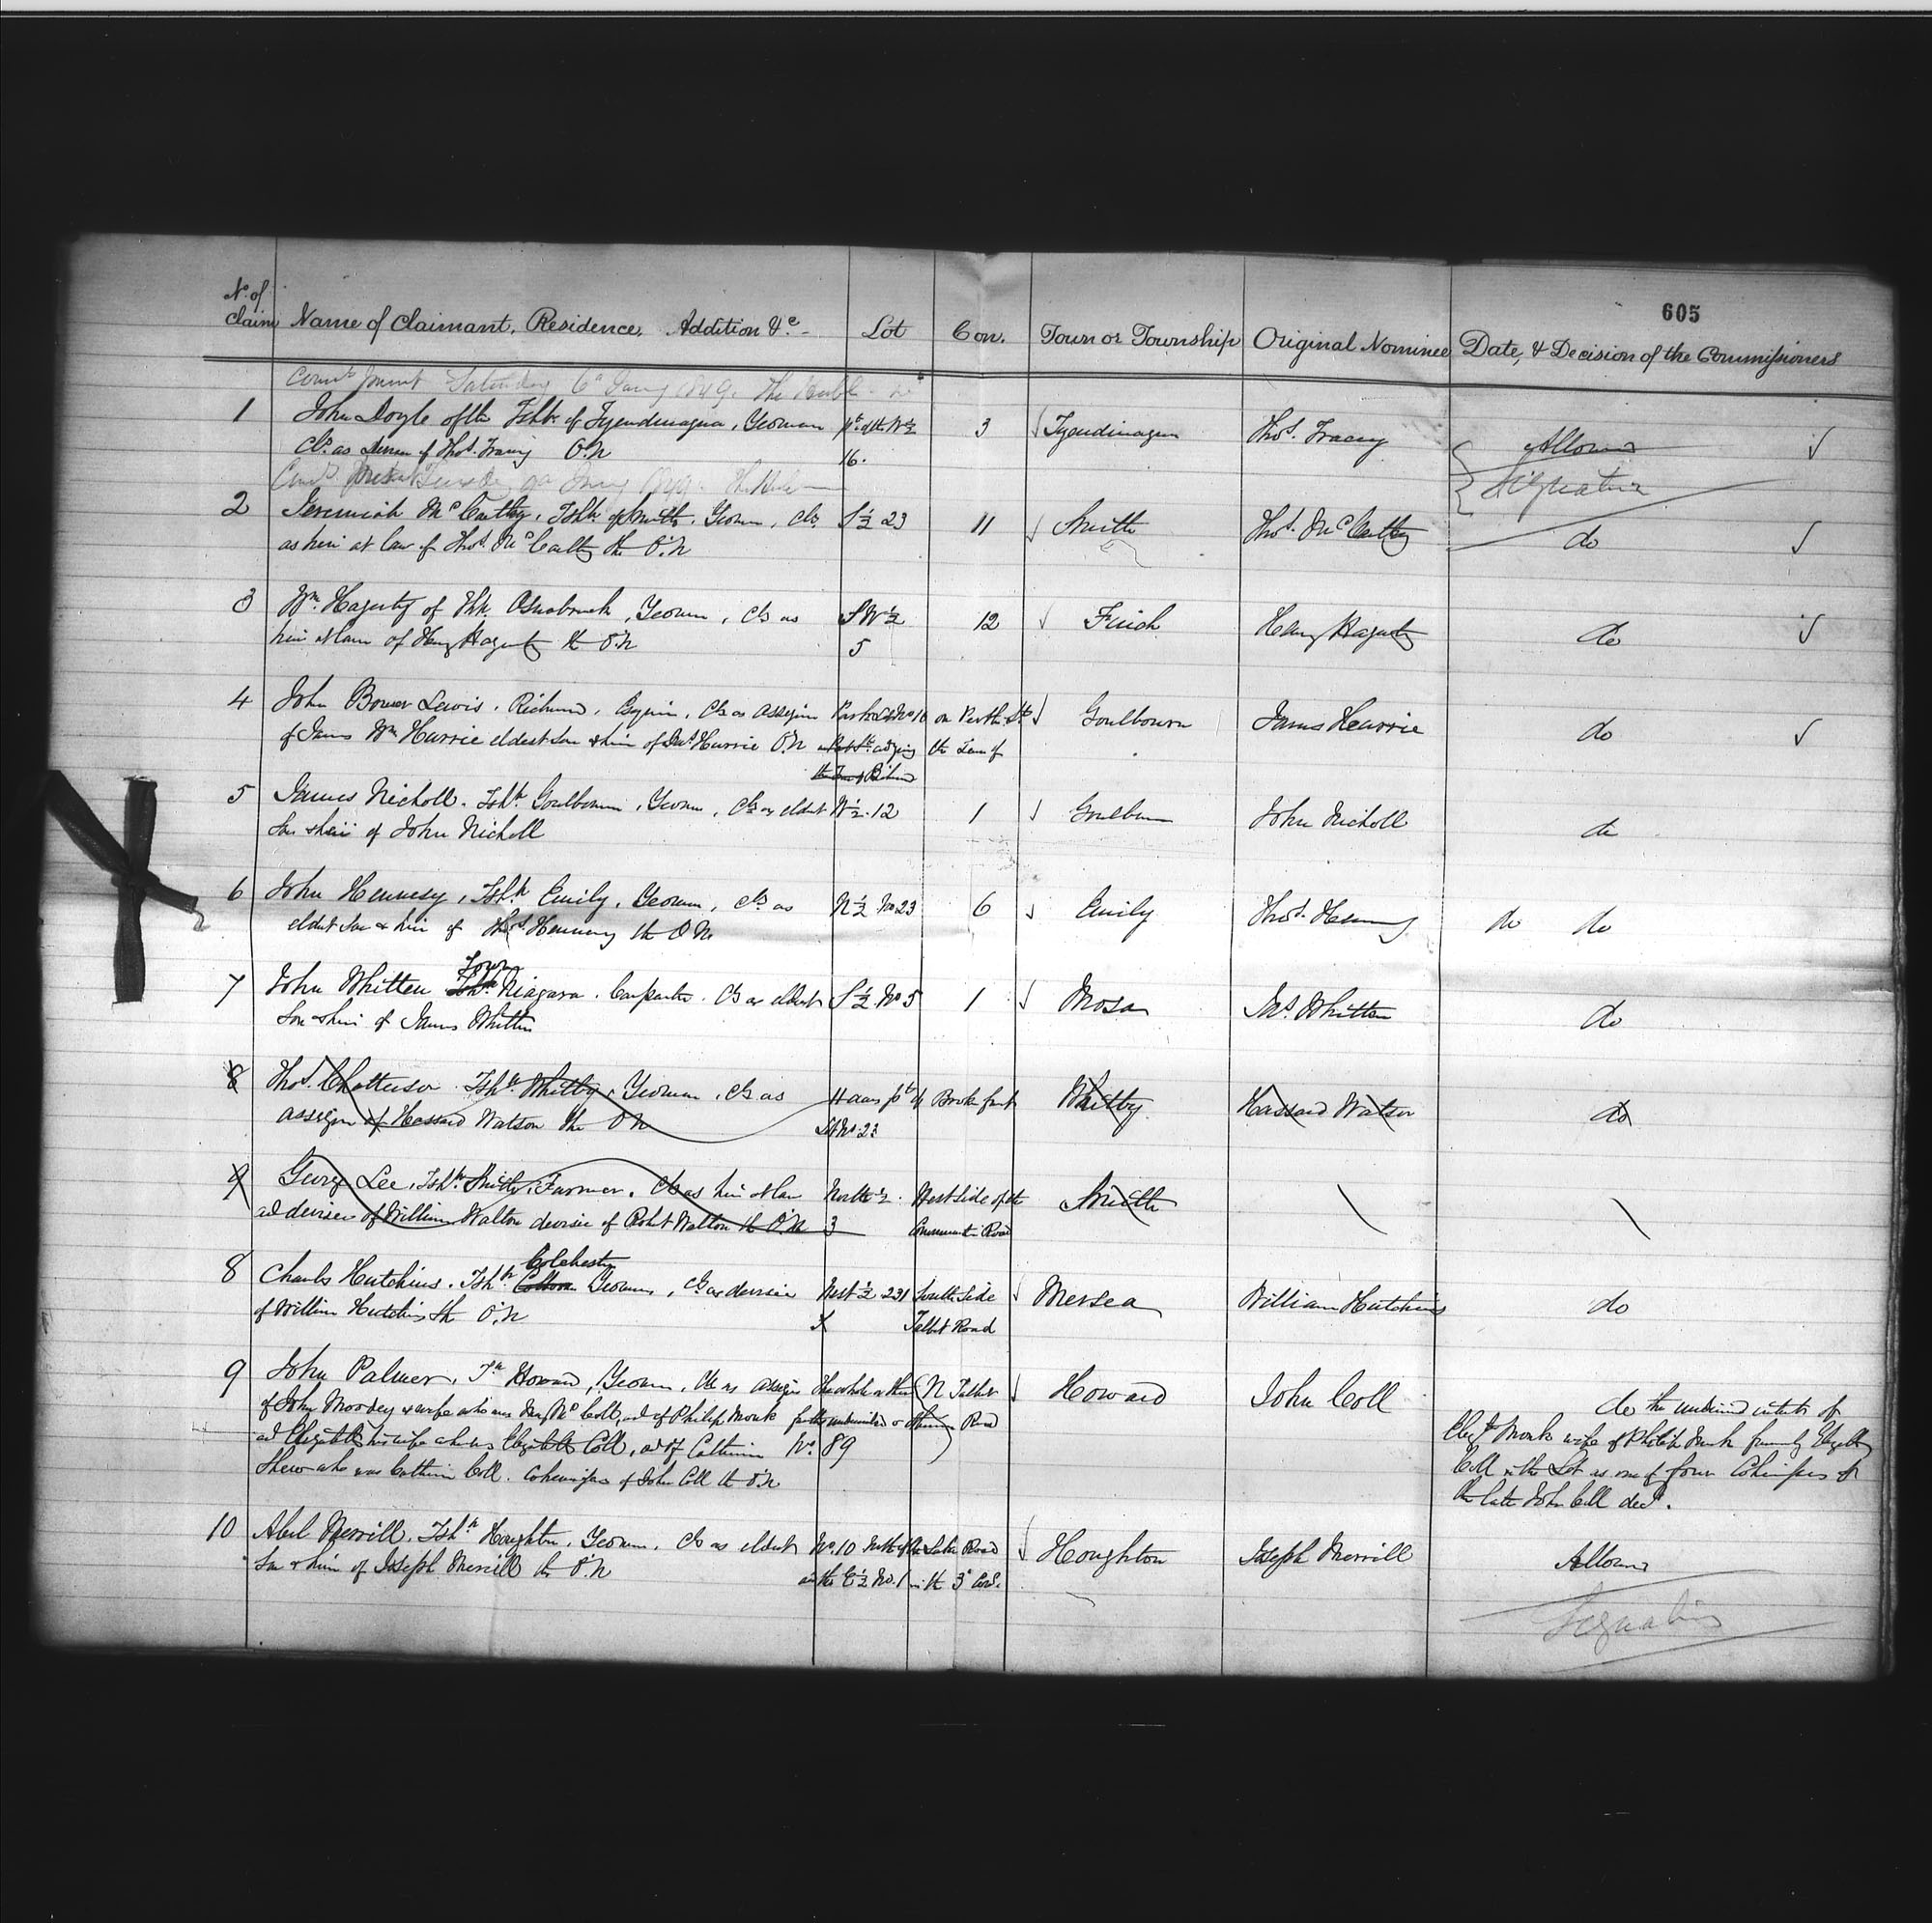 605
No. of Claim Name of Claimant, Residence, Addition &c. Lot Con. Town or Township Original Nominee Date, & Decision of the Commissioners
Saturday 6th 1849.
1 John Doyle of the Tshp. of Tyendinagua, Yeoman pt. of the W½ 3 Tyendinagua Thos. Tracey Allowed
Cls. as devisee of Thos. Tracey O.N 16.
Signature
2 Jeremiah McCarthy, Tshp. of Smith, Yeoman, cls. S ½ 23 11 Smith Thos. McCarthy do
as heir at law of Thos. McCarthy the O.N
3 Wm. Hagerty of Tshp Osnabruck, Yeoman, cls as S W ½ 12 Finch Henry Hagerty do
heir at law of Henry Hagerty the O.N 5
4 John Bower Lewis, Richmond, Esquire, Cls as assignee Park Lot No 10 on Perth St Goulbourn James Hearrie do
of James Wm Hurrie eldest son & heir of Jas. Hurrie O.N the Town of
5 James Nicholl, Tshp. Goulbourn, Yeoman, Cls as eldest W ½ 12 1 Goulbourn John Nicholl do
son & heir of John Nicholl
6 John Hennesy, Tshp. Emily, Yeoman, cls as N ½ No 23 6 Emily Thos. Hennesy do do
eldest son & heir of Thos. Hennesy the O.N.
Town
7 John Whitten Tshp. Niagara, Carpenter, Cls as eldest S ½ No 5 1 Mosa Jas. Whitten do
son & heir of James Whitten
8 Thos. Chatterson Tshp. Whitby, Yeoman, cls as pt of Broke front Whitby Hassard Watson do
assignee of Hassard Watson the O N Lot No 23
9 George Lee, Tshp. Smith, Farmer, Cls as heir at law North ½ West side of the Smith
and devisee of William Walton devisee of Robt Walton the O.N 3 Communication Road
Colchester
8 Charles Hutchins, Tshp. Yeoman, cls as devisee West ½ 231 South Side Mersea William Hutchins do
of William Hutchins the O.N X Talbot Road
9 John Palmer, Tp Howard, Yeoman, cls as assignee The whole or three N Talbot Howard John Coll do the undivided interests of
of John Moodey & wife who was McColl, and of Philip Monk fourths undivided or Road Elizth Monk wife of Philip Monk formerly Elizabeth
and Elizabeth his wife who was Elizabeth Coll, and of Catherine No. 89 Coll in the Lot as one of four Coheiresses of
Shew who was Catherine Coll, Coheiresses of John Coll the O.N the late John Coll decd.
10 Abel Merrill, Tshp Houghton, Yeoman, Cls as eldest No. 10 North of the Lake Road Houghton Joseph Merrill Allowed
son & heir of Joseph Merrill the O.N and the E ½ No. 1 in the 3d Con.
Signatures